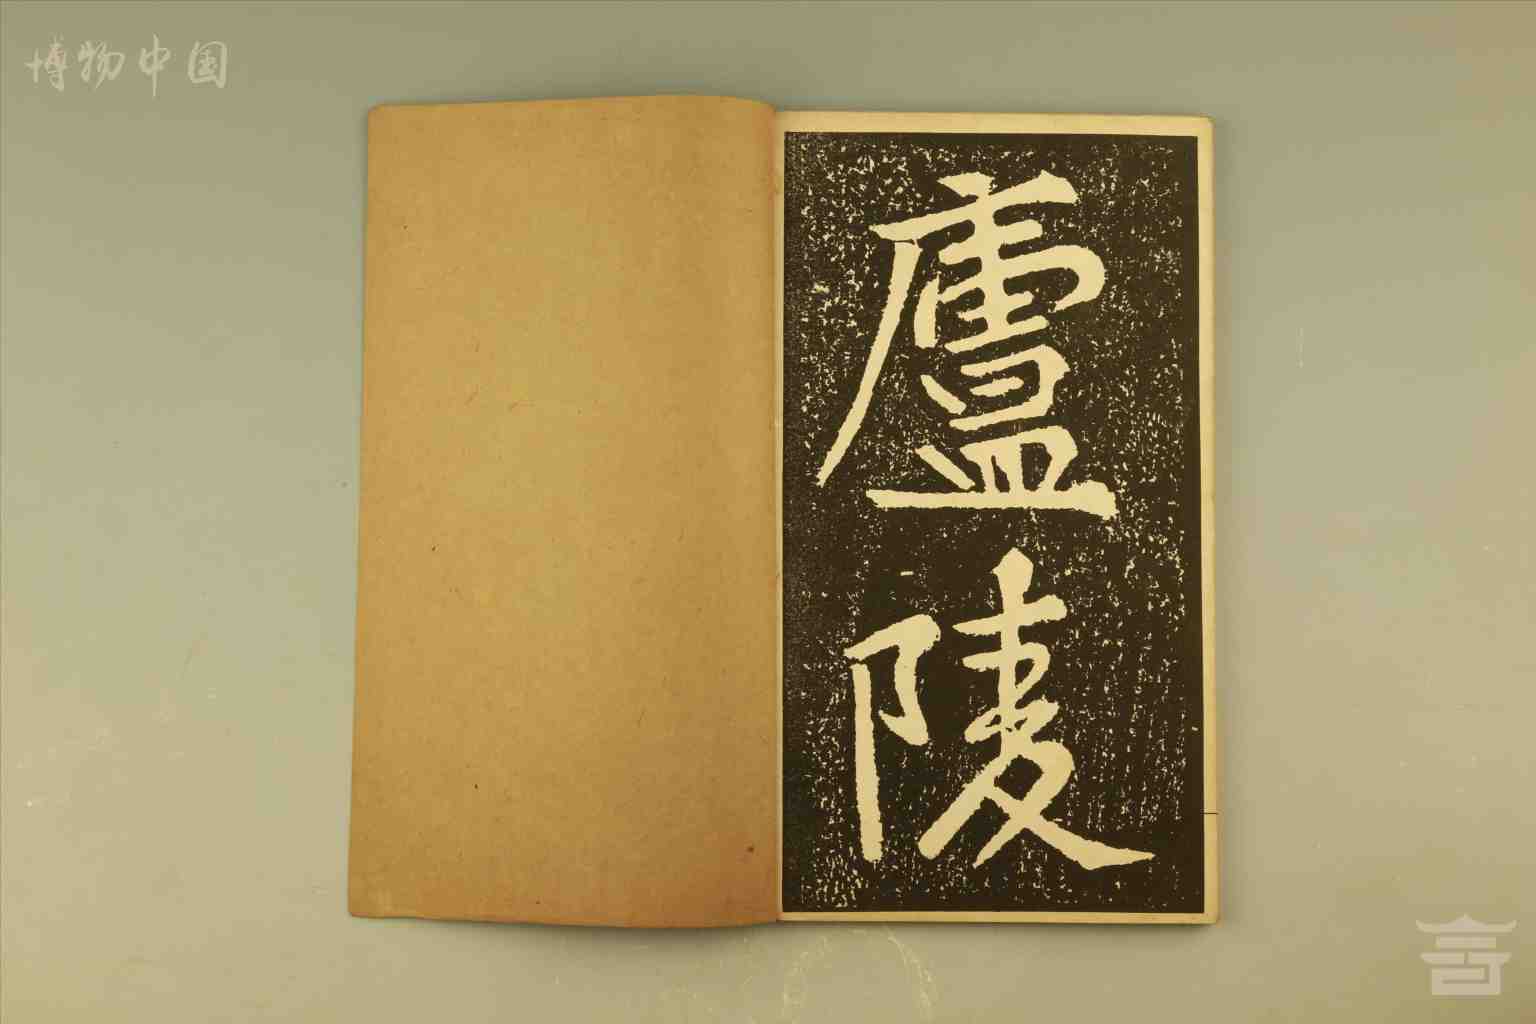 博物中国
廬陵